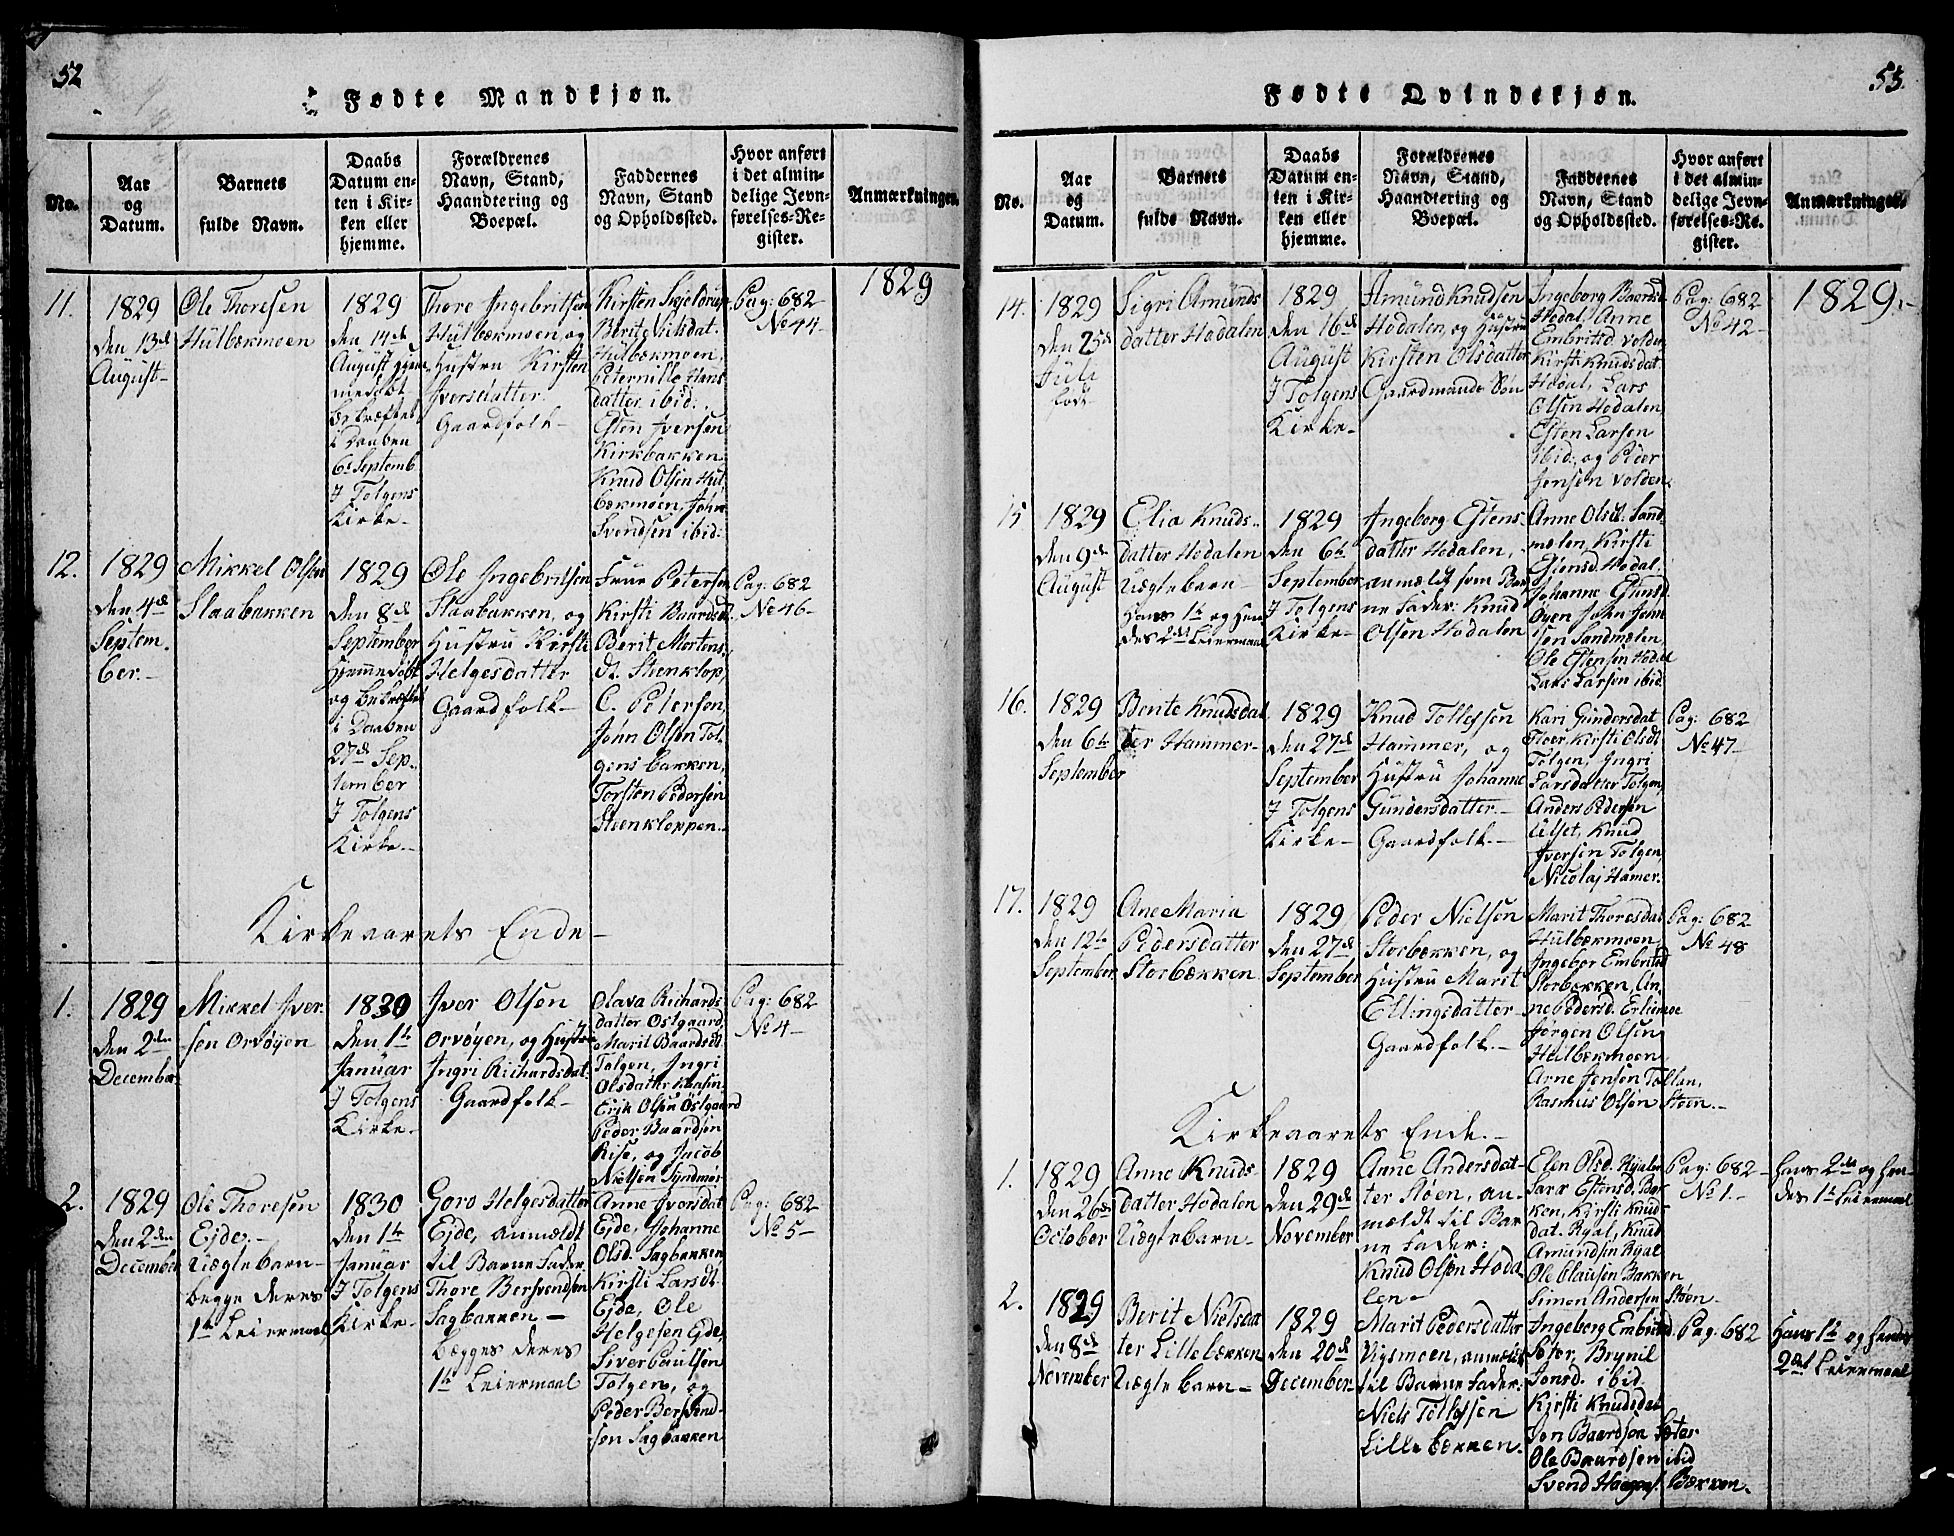 52
Fødte Mandkjøn.
No.
Aar
og
Datum.
Barnets
fulde Navn.
Daabs
Datum en-
ten i Kir-
ken eller
hjemme.
Forældrenes
Navn, Stand,
Haandtering og
Boepæl.
Faddernes
Navn, Stand
og Opholdssted.
Hvor anført
i det almin-
delige Jevn-
førelses-Re-
gister.
Anmærkninger.
1829
11.
1829
den 13de
August-
Ole Thoresen
Hulbækmoen
1829
den 14de
August hjem
medøbt
bekræftet
i Daaben
6te Septemb
I Tolgens
Kirke-
Thore Ingebritsen
Hulbækmoen, og
Hustru Kirsten
Iversdatter
Gaardfolk-
Kirsten Skjelderup
Berit Nielsdat.
Hulbækmoen,
Peternille Hans
datter ibid:,
Esten Iversen
Kirkbakken.
Knud Olsen Hul
bækmoen, John
Svendsen ibid:
Pag: 682
No 44-
12.
1829
den 4de
Septem.
ber.-
Mikkel Olsen
Slaabakken
1829
den 8de
September
Hjemmedøbt
og bekræftet
i Daaben
27de Sep-
tember
I Tolgens
Kirke.-
Ole Ingebritsen
Slaabakken, og
Hustru Kirsti
Helgesdatter
Gaardfolk-
Frue Petersen
Kirsti Baardsd.
Berit Mortens
dt. Steenklop,
C. Petersen,
Jønn Olsen Tol-
gensbakken,
Torsten Pedersen
Steenkloppen.-
Pag: 682
No 46-
Kirkeaarets Ende-
1.
1829
den 2den
December
Mikkel Iver-
sen Orvøyen
1830
den 1te
Januar
I Tolgens
Kirke.
Iver Olsen
Orvøyen, og Hustru
Ingri Richardsdat.
Gaardfolk-
Olava Richards
datter Østgaard
Marit Baardsdt
Tolgen, Ingri
Olsdatter Kaasen
Erik Olsen Østgaard
Peder Baardsen
Rise, og Jacob
Nielsen Syndmør
Pag: 682
No 4-
2.
1829
den 2den
December
Ole Thoresen
Eide.-
Uægte barn-
begge deres
1te Leiermaal
1830
den 1te
Januar
I Tolgens
Kirke-
Goro Helgesdatter
Eide, anmældt
til Barne Fader
Thore Bersvendsen
Sagbakken-
begges deres
1te Leiermaal
Anne Iversdat
Eide, Johanne
Olsd. Sagbakken
Kirsti Larsdt.
Eide, Ole
Helgesen Eide,
Siver Paulsen
Tolgen, og
Peder Bersvend-
sen Sagbakken
Pag: 682
No 5-
53.
Fødte Qvindekjøn.
No.
Aar
og
Datum.
Barnets
fulde Navn.
Daabs
Datum en-
ten i Kir-
ken eller
hjemme.
Forældrenes
Navn, Stand,
Haandtering og
Boepæl.
Faddernes
Navn, Stand
og Opholdssted.
Hvor anført
i det almin-
delige Jevn-
førelses-Re-
gister.
Anmærkninger.
1829.-
14.
1829
den 25de
Juli
født
Sigri Amunds
datter Hodalen
1829
den 16de
August
I Tolgens
Kirke-
Amund Knudsen
Hodalen, og Hustru
Kirsten Olsdatter
Gaardmands Søn
Ingeborg Baardsd
Hodal, Anne
Embritsd. Volden
Kirsti Knudsdat.
Hodal, Lars
Olsen Hodalen,
Esten Larsen
ibid:, og Peder
Jensen Volden.
Pag: 682
No 42-
15
1829
den 9de
August
Elia Knuds-
datter Hodalen
Uægte barn-
Hans 1te og Hen
des 2det Leiermaal
1829
den 6te
September
I Tolgens
Kirke-
Ingeborg Estens-
datter Hodalen,
anmældt som Bar
ne Fader: Knud
Olsen Hodalen
Anne Olsd. Sand
mælen, Kirsti
Estensd. Hodal
Johanne
Øyen John John
sen Sandmælen,
Ole Estensen Hodal
Lars Larsen ibid.
16.
1829
den 6te
September
Bente Knudsdat
ter Hammer-
1829
den 27de
September
I Tolgens
Kirke-
Knud Tollefsen
Hammer, og
Hustru Johanne
Gundersdatter-
Gaardfolk.-
Kari Gundersdat
Kirsti Olsdt
Tolgen, Ingri
Larsdatter Tolgen,
Anders Pedersen
Ulset, Knud
Iversen Tolgen
Nicolaj Hamer.
Pag: 682
No 47-
17.
1829
den 12te
September
Ane Maria
Pedersdatter
Storbækken
1829
den 27de
September
Peder Nielsen
Storbekken, og
Hustru Marit
Ellingsdatter-
Gaardfolk.-
Marit Thoresdat
Hulbækmoen,
Ingebor Embritsd
Storbækken, An-
ne Pedersd. Erlimoe
Jørgen Olsen
Hulbækmoen,
Arne Jensen Tollan,
Rasmus Olsen Steen.-
Pag: 682
No 48
Kirkeaarets Ende.-
1.
1829
den 26de
October
Anne Knuds-
datter Hodalen
Uægte barn-
1829
den 29de
November
Anne Andersdat-
ter Støen, an-
mældt til Bar
ne Fader:
Knud Olsen Hoda
len-
Elen Olsd. Ryalen
Sara Estensd. Bak
ken, Kirsti Knud
dat. Ryal, Knud
Amundsen Ryal
Ole Clausen Bakken
Simon Andersen Støen-
Pag: 682-
No 1.-
Hans 2det og Hen
des 1te Leiermaal
2.
1829
den 8de
November
Berit Nielsdat
ter Lillebækken
Uægte barn-
1829
den 20de
December-
Marit Pedersdatter
Vigsmoen, anmældt
til Barne Fader:
Niels Tollefsen
Lillebækken.
Ingeborg Embritsd.
Sæter, Brynil
Jonsd. ibid
Kirsti Knudsdat
Jon Baardsen Sæter
Ole Baardsen ibid
Svend Bækken.
Pag: 682
Hans 1te og Hendes
2det Leiermaal